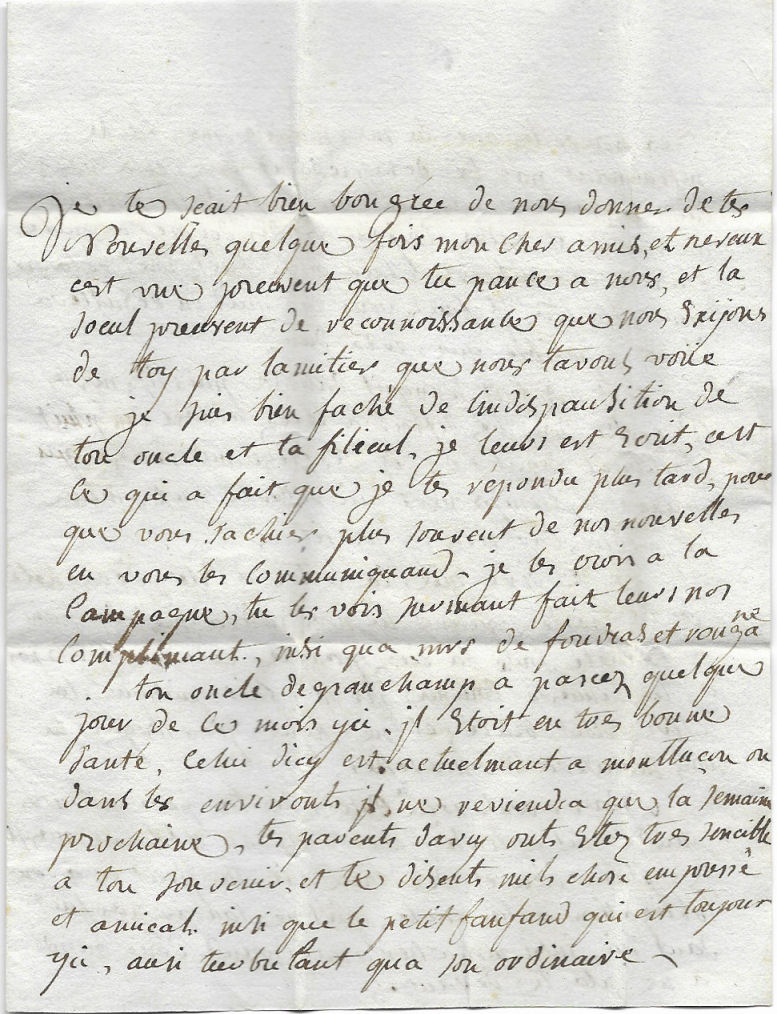 je te scait bien bon gree de nous donner de tes
Nouvelles quelque fois mon cher amis, et neveux
cest une preuvent que tu pance a nous, et la
seeul preuvent de reconnoissance que nous Exijons
de toy par lamitier que nous tavons voüe
je suis bien fachè de lindispausition de
ton oncle et ta filieul, je leurs est Ecrit, cest
ce qui a fait que je te répondu plus tard, pour
que vous sachier plus souvent de nos nouvelles
en vous les Communiquand. je les crois a la
Campagne, tu les vois surmant fait leurs nos
Complimant, insi qua mrs de foudras et
. ton oncle degranchamp a parcez quelque
jour de ce mois yci. jl Etoit en tres bonne
Santé, Celui dicy est actuelmant a montluçon ou
dans les environts jl ne reviendra que la semaine
prochaine, tes parents davy onts Etez tres sencible
a ton souvenir, et te disents mils chose empressè
et amical. insi que le petit fanfand qui est toujour
yci, ausi turbulant qua son ordinaire